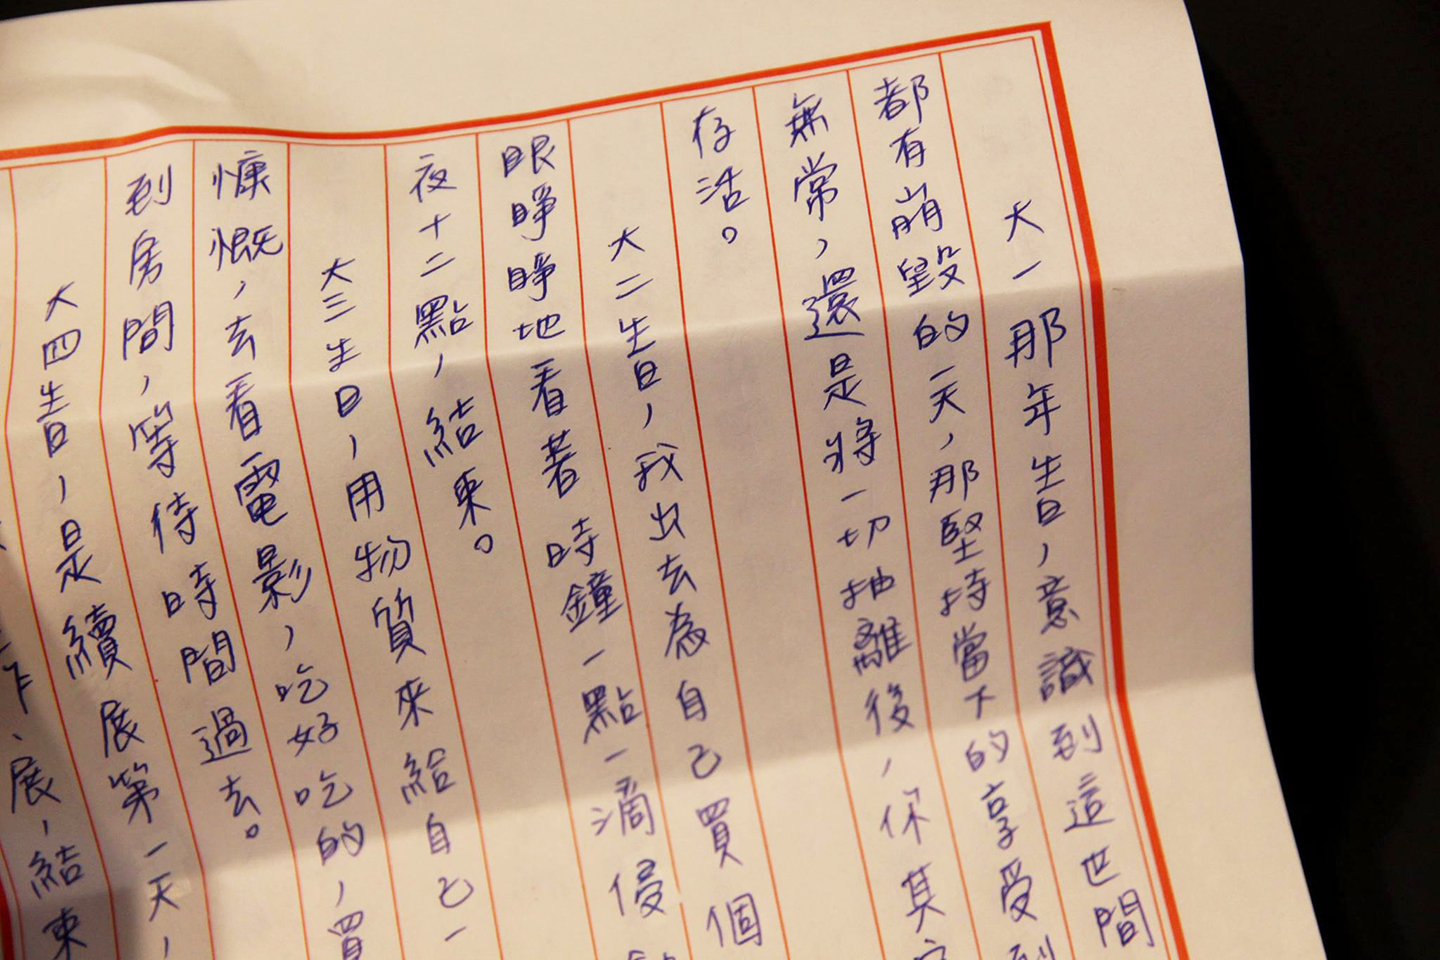 大一那年生日,意識到這世間
都有崩毀的一天,那堅持當下的享受到
無常,還是將一切抽離後,你其
存活。
大二生日,我出去為自己買個
眼睜睜地看著時鐘一點一滴侵
夜十二點,結束。
大三生日,用物質來給自己一
慷慨,去看電影,吃好吃的,買
到房間,等待時間過去。
大四生日,是續展第一天,
展,結束